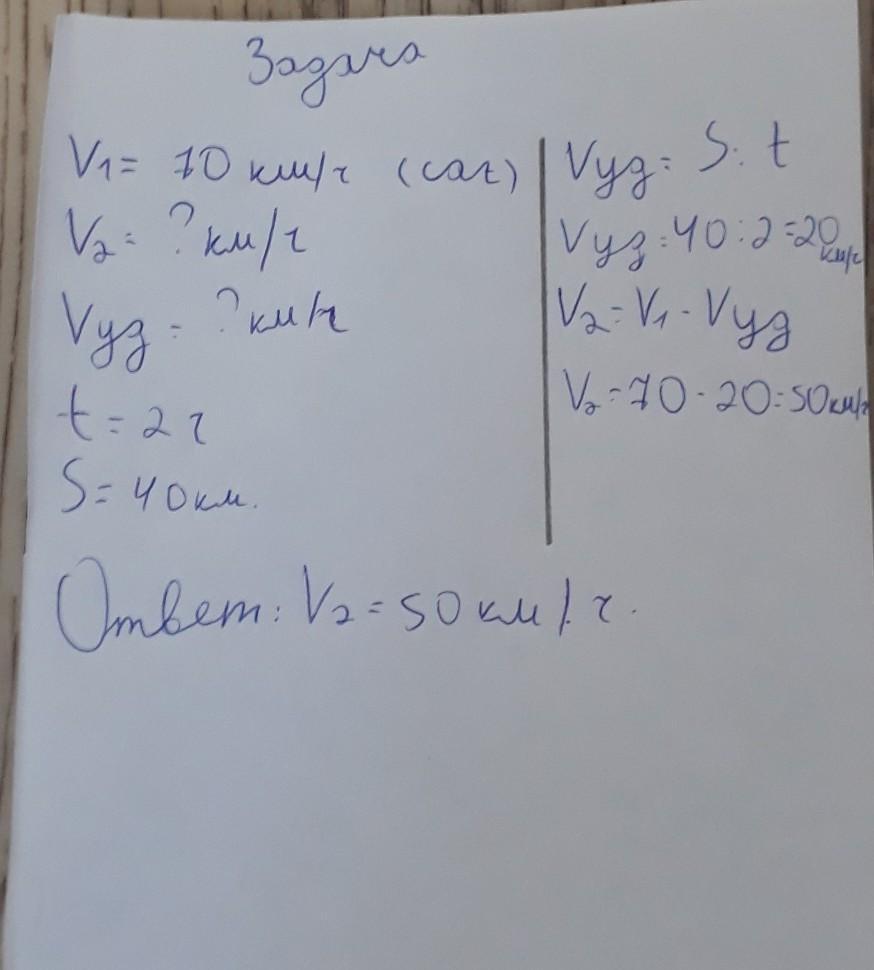 Задача
V1 = 70 км/ч (car)
V2 = ? км/ч
Vуд = ? км/ч
t = 2 ч
S = 40 км.
Vуд = S : t
Vуд = 40 : 2 = 20 км/ч
V2 = V1 - Vуд
V2 = 70 - 20 = 50 км/ч
Ответ: V2 = 50 км/ч.